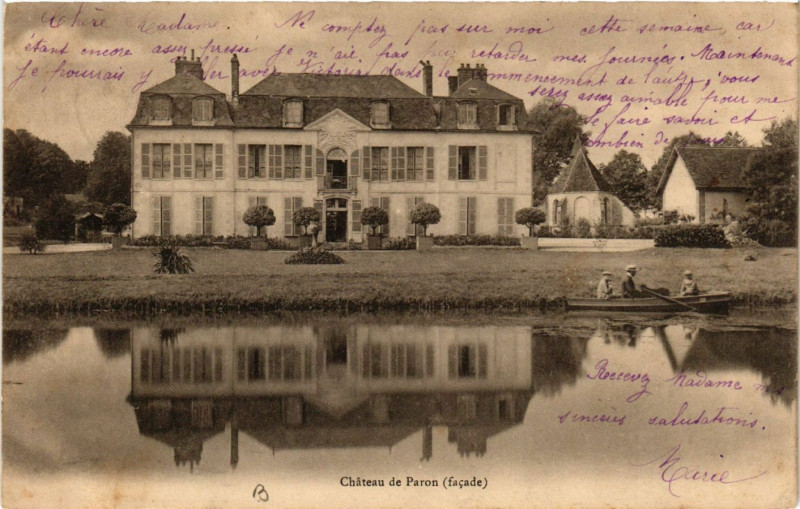 Chère Madame. Ne comptez pas sur moi cette semaine, car
étant encore assez pressé je n'ai pas pu retarder mes journées. Maintenant
Je pourrais y avec Victoria dans le commencement de l'autre, vous
serez assez aimable pour me
le faire savoir et
combien de jours
Recevez Madame mes
sincères salutations.
Marie
Château de Paron (façade)
B